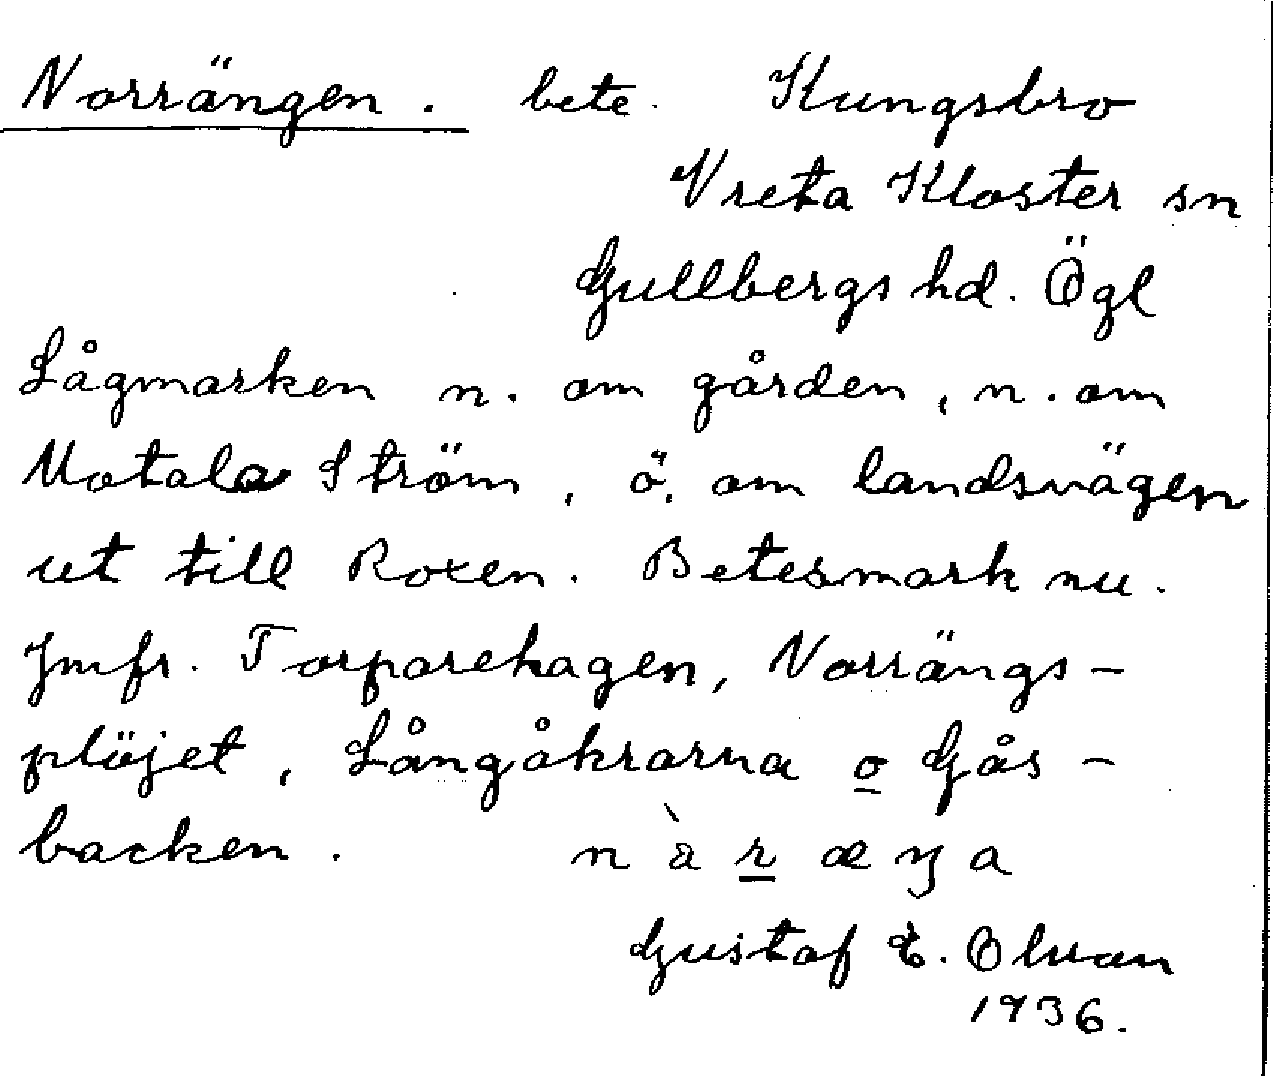 Norrängen. bete. Kungsbro
Vreta Kloster sn
Gullbergs hd. Ögl
Lågmarken n. om gården, n. om
Motala Ström, ö. om landsvägen
ut till Roxen. Betesmark nu.
Jmfr. Torparehagen, Norrängs-
plöjet, Långåkrarna o Gås-
backen.
Gustaf E.
1936.